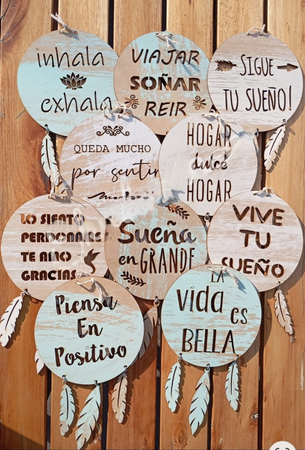 inhala
exhala
VIAJAR
SOÑAR
REIR
SIGUE
TU SUEÑO!
QUEDA MUCHO
por sentir
HOGAR
dulce
HOGAR
LO SIENTO
PERDONAME
TE AMO
GRACIAS
Sueña
en GRANDE
VIVE
TU
SUEÑO
Piensa
En
Positivo
LA
vida es
BELLA